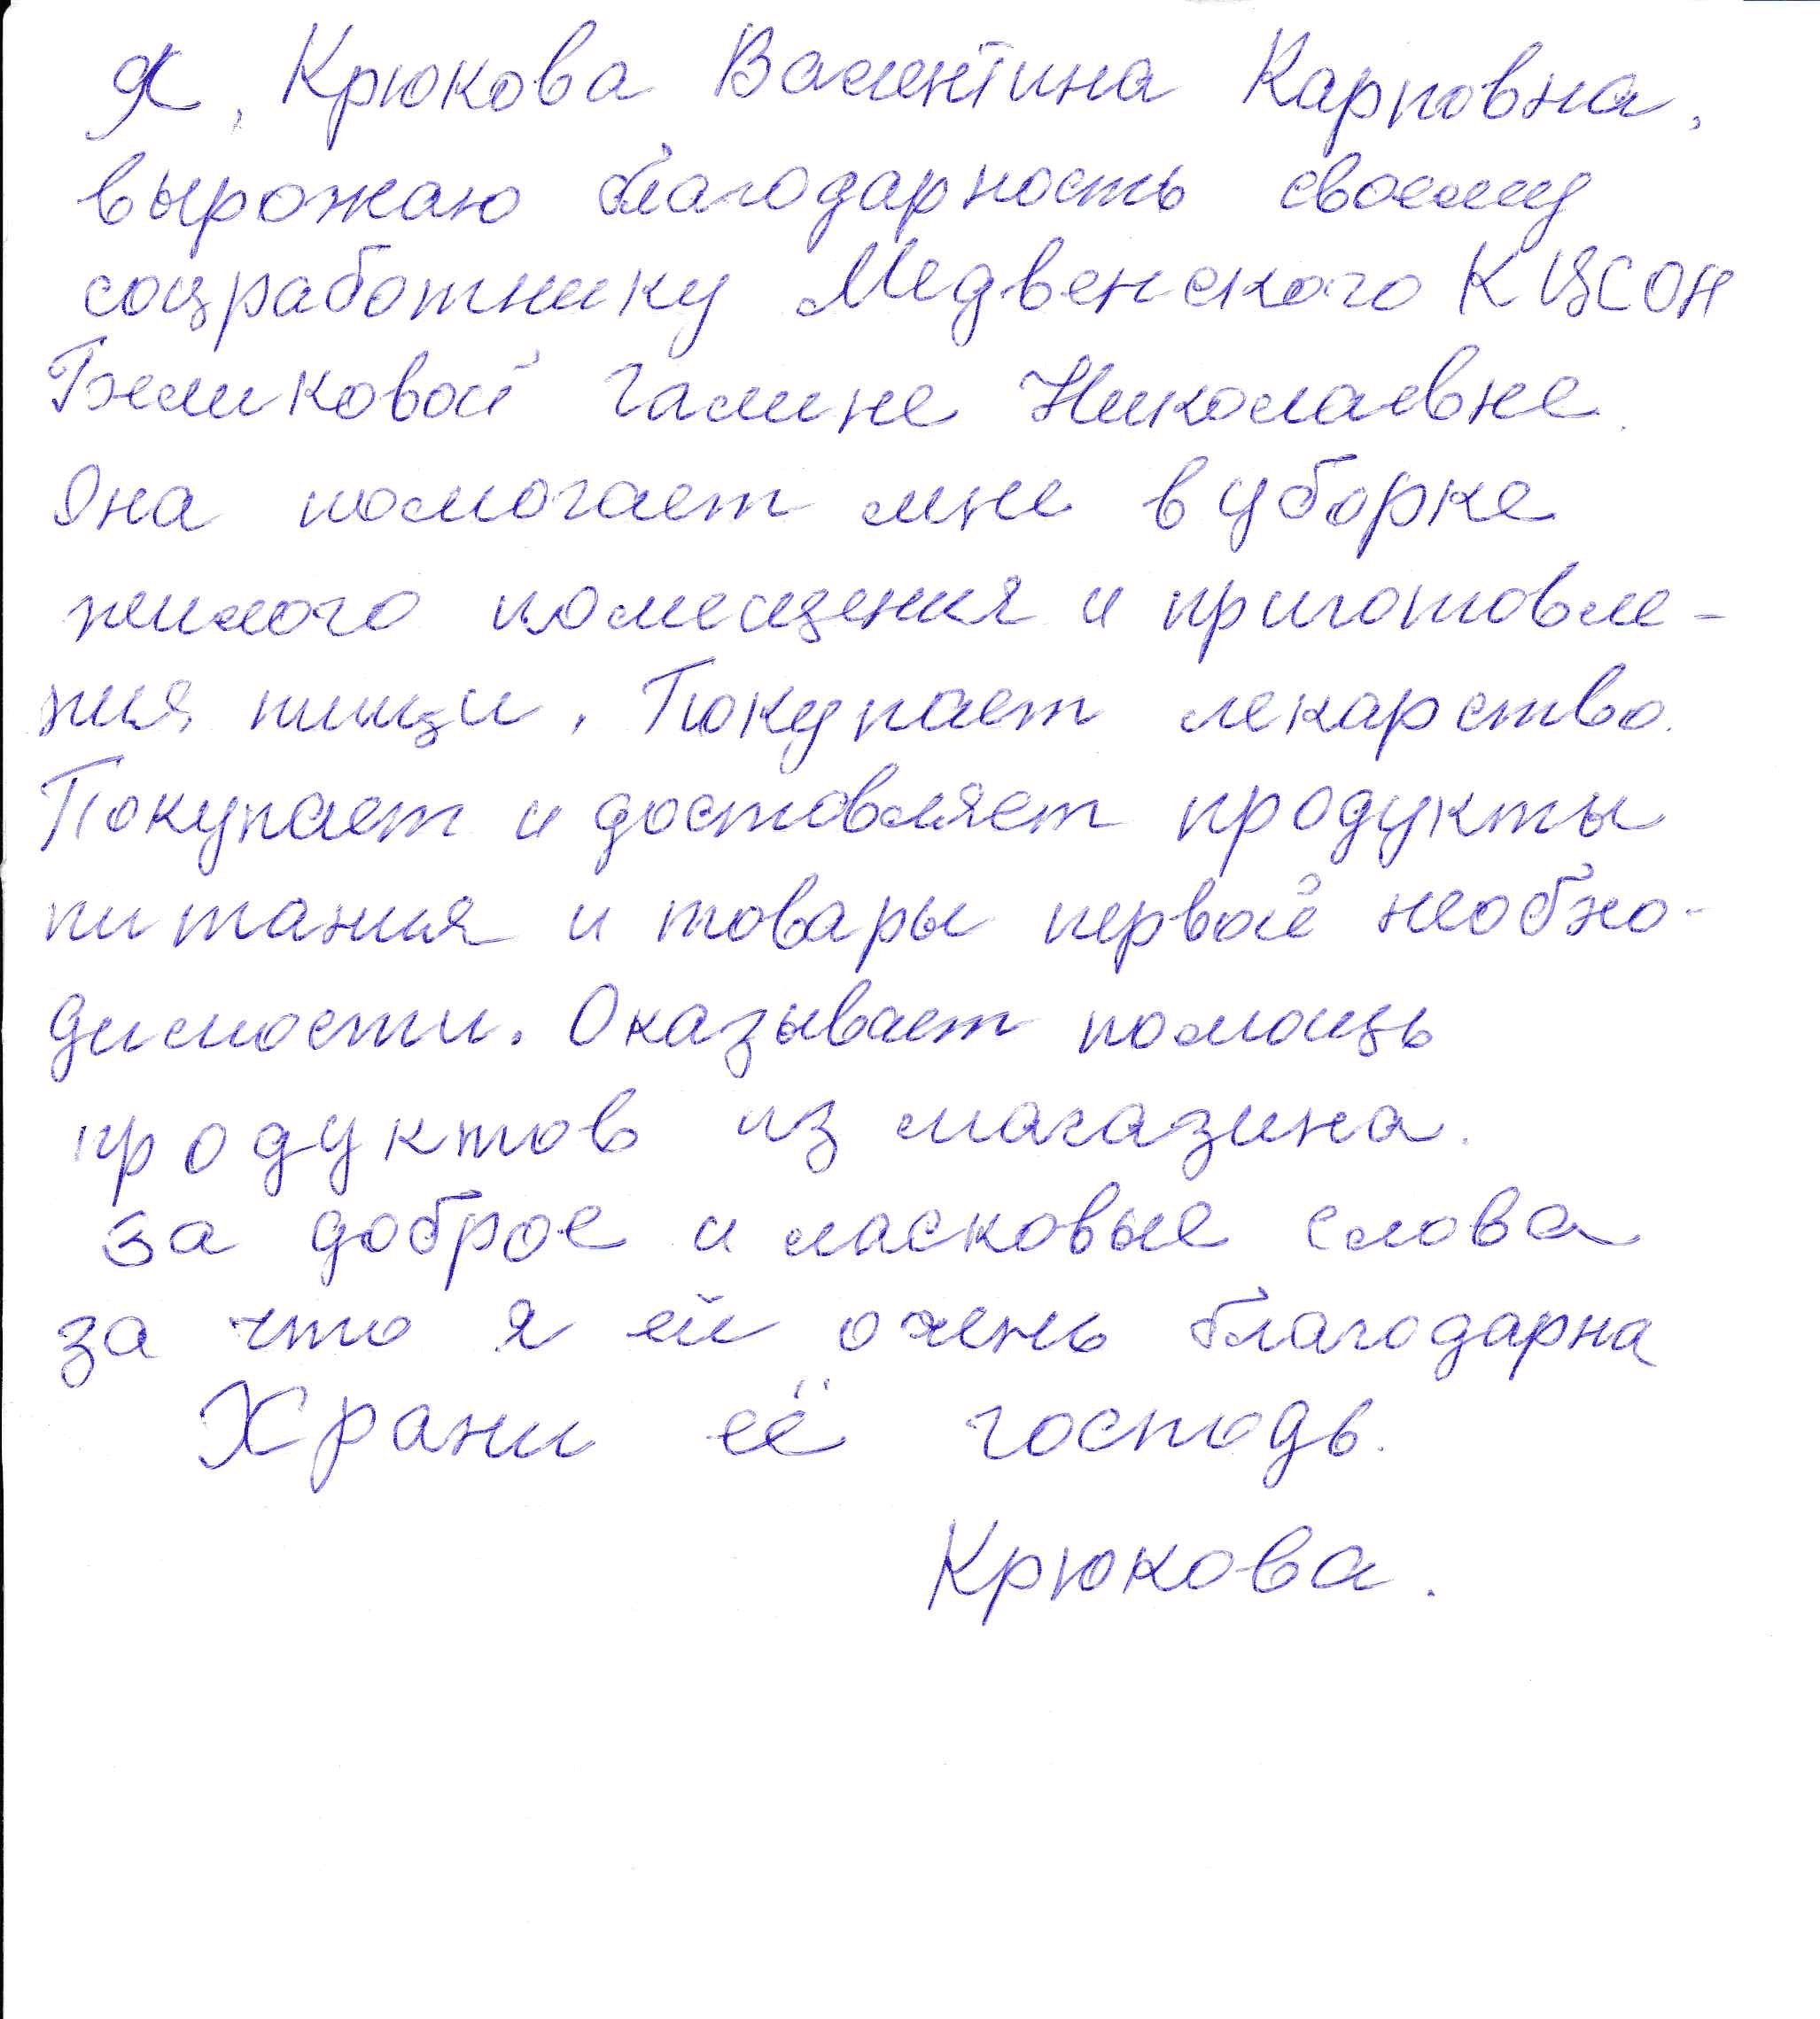 Я, Крюкова Валентина Карповна,
вырожаю благодарность своему
соцработнику Медвенского КЦСОН
Беликовой Галине Николаевне.
Она помогает мне в уборке
жилого помещения и приготовле-
ния пищи. Покупает лекарство.
Покупает и достовляет продукты
питания и товары первой необхо-
димости. Оказывает помощь
продуктов из магазина.
за доброе и ласковые слова
за что я ей очень благодарна
Храни её господь.
Крюкова.